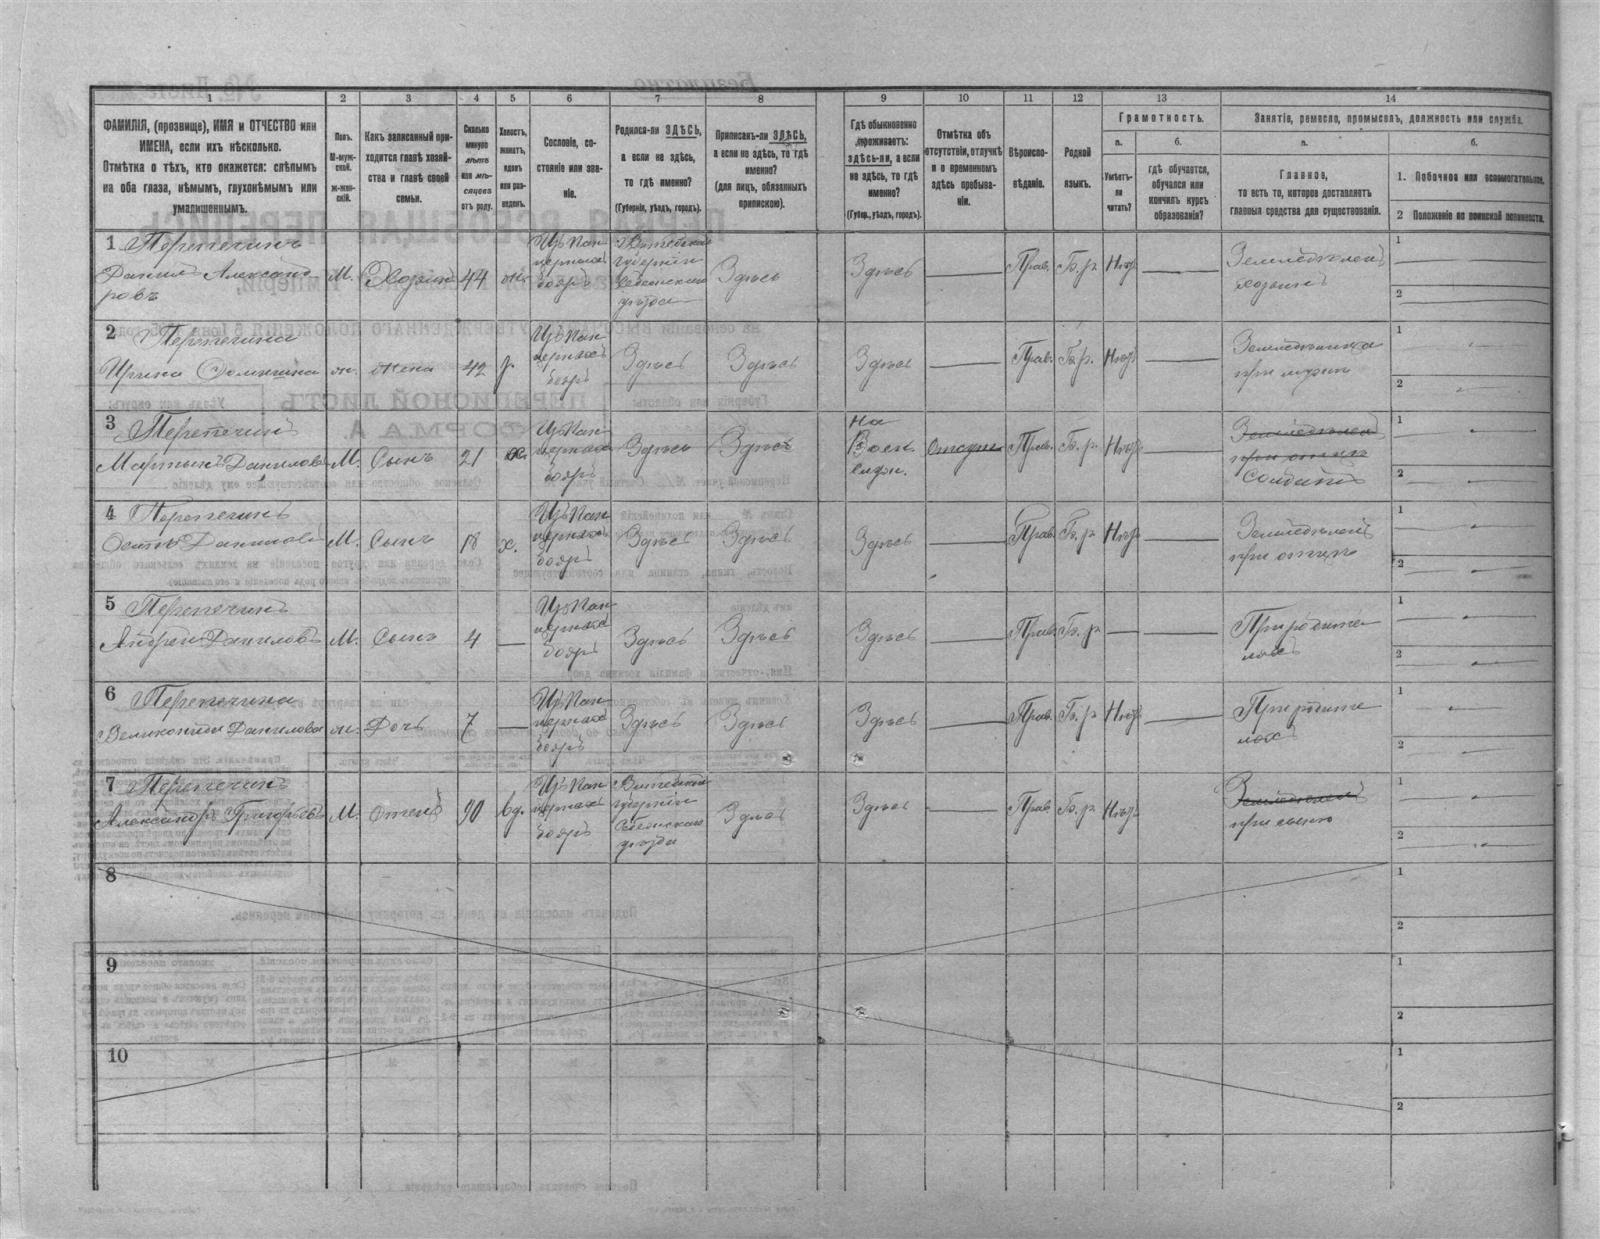 1 2 3 4 5 6 7 8 9 10 11 12 13 14
ФАМИЛІЯ, (прозвище), ИМЯ и ОТЧЕСТВО или
ИМЕНА, если ихъ нѣсколько.
Отмѣтка о тѣхъ, кто окажется: слѣпымъ
на оба глаза, нѣмымъ, глухонѣмымъ или
умалишеннымъ.
Полъ.
М-муж-
ской.
ж-жен-
скій.
Какъ записанный при-
ходится главѣ хозяй-
ства и главѣ своей
семьи.
Сколько
минуло
лѣтъ
или мѣ-
сяцевъ
отъ роду.
Холостъ,
женатъ,
вдовъ
или раз-
веденъ.
Сословіе, со-
стояніе или зва-
ніе.
Родился-ли ЗДѢСЬ,
а если не здѣсь,
то гдѣ именно?
(Губернія, уѣздъ, городъ).
Приписанъ-ли ЗДѢСЬ,
а если не здѣсь, то гдѣ
именно?
(для лицъ, обязанныхъ
припискою).
Гдѣ обыкновенно
проживаетъ:
здѣсь-ли, а если
не здѣсь, то гдѣ
именно?
(Губер., уѣздъ, городъ).
Отмѣтка объ
отсутствіи, отлучкѣ
и о временномъ
здѣсь пребыва-
ніи.
Вѣроиспо-
вѣданіе.
Родной
языкъ.
Грамотность.
а.
Умѣетъ-
ли
читать?
б.
гдѣ обучается,
обучался или
кончилъ курсъ
образованія?
Занятіе, ремесло, промыселъ, должность или служба.
а.
Главное,
то есть то, которое доставляетъ
главныя средства для существованія.
б.
1. Побочное или вспомогательное.
2 Положеніе по воинской повинности.
1 Перепечинъ
Данилъ Александ-
ровъ
М. Хозяинъ 44 ж.
Изъ Пан-
церныхъ
бояръ
Витебской
губерніи
Себежскаго
уѣзда
Здѣсь Здѣсь — Прав. Б.р. Нѣтъ —
Земледѣлецъ
хозяинъ
1
2
2 Перепечина
Ирина
ж. жена 42 з.
Изъ Пан-
церныхъ
бояръ
Здѣсь Здѣсь Здѣсь — Прав. Б.р. Нѣтъ —
при мужѣ
1
2
3 Перепечинъ
Мартынъ Даниловъ
М. Сынъ 21
Изъ Пан-
церныхъ
бояръ
Здѣсь Здѣсь
На
Воен
служ.
Прав. Б.р. Нѣтъ —
Земледѣлецъ
при отцѣ
Солдатъ
1
2
4 Перепечинъ
Осипъ Даниловъ
М. Сынъ 18 х.
Изъ Пан-
церныхъ
бояръ
Здѣсь Здѣсь Здѣсь — Прав. Б.р. Нѣтъ —
Земледѣлецъ
при отцѣ
1
2
5 Перепечинъ
Андрей Даниловъ
М. Сынъ 4 —
Изъ Пан-
церныхъ
бояръ
Здѣсь Здѣсь Здѣсь — Прав. Б.р. — —
При родите-
ляхъ
1
2
6 Перепечина
Даниловa
ж. Дочь 7 —
Изъ Пан-
церныхъ
бояръ
Здѣсь Здѣсь Здѣсь — Прав. Б.р. Нѣтъ —
При родите-
ляхъ
1
2
7 Перепечинъ
Александръ Григорьевъ
М. Отецъ 90 вд.
Изъ Пан-
церныхъ
бояръ
Витебской
губерніи
Себежскаго
уѣзда
Здѣсь Здѣсь — Прав. Б.р. Нѣтъ
Земледѣлецъ
при сынѣ
1
2
8
1
2
9
1
2
10
1
2